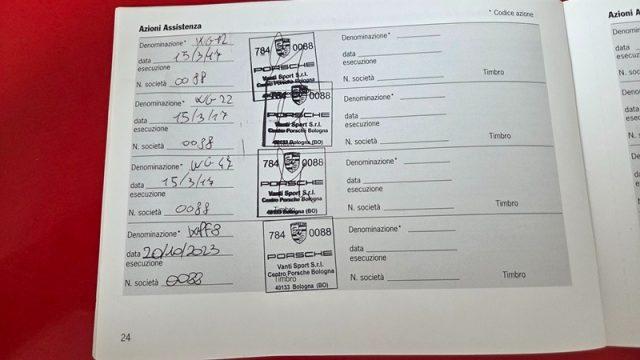 Azioni Assistenza
* Codice azione
Azioni A
Denominazione* WG12
data 15/3/17
esecuzione
N. società 0088
784 0088
PORSCHE
Vanti Sport S.r.l.
Centro Porsche Bologna
Denominazione*
data
esecuzione
N. società Timbro
Denominazione* WG22
data 15/3/17
esecuzione
N. società 0088
0088
Vanti Sport S.r.l.
Centro Porsche Bologna
40133 Bologna (BO)
Denominazione*
data
esecuzione
N. società Timbro
Denominazione*
data 15/3/17
esecuzione
N. società 0088
784 0088
PORSCHE
Vanti Sport S.r.l.
Centro Porsche Bologna
Timbro
40133 Bologna (BO)
Denominazione*
data
esecuzione
N. società Timbro
Denominazione*
data 20/10/2023
esecuzione
N. società 0088
784 0088
PORSCHE
Vanti Sport S.r.l.
Centro Porsche Bologna
Timbro
40133 Bologna (BO)
Denominazione*
data
esecuzione
N. società Timbro
24